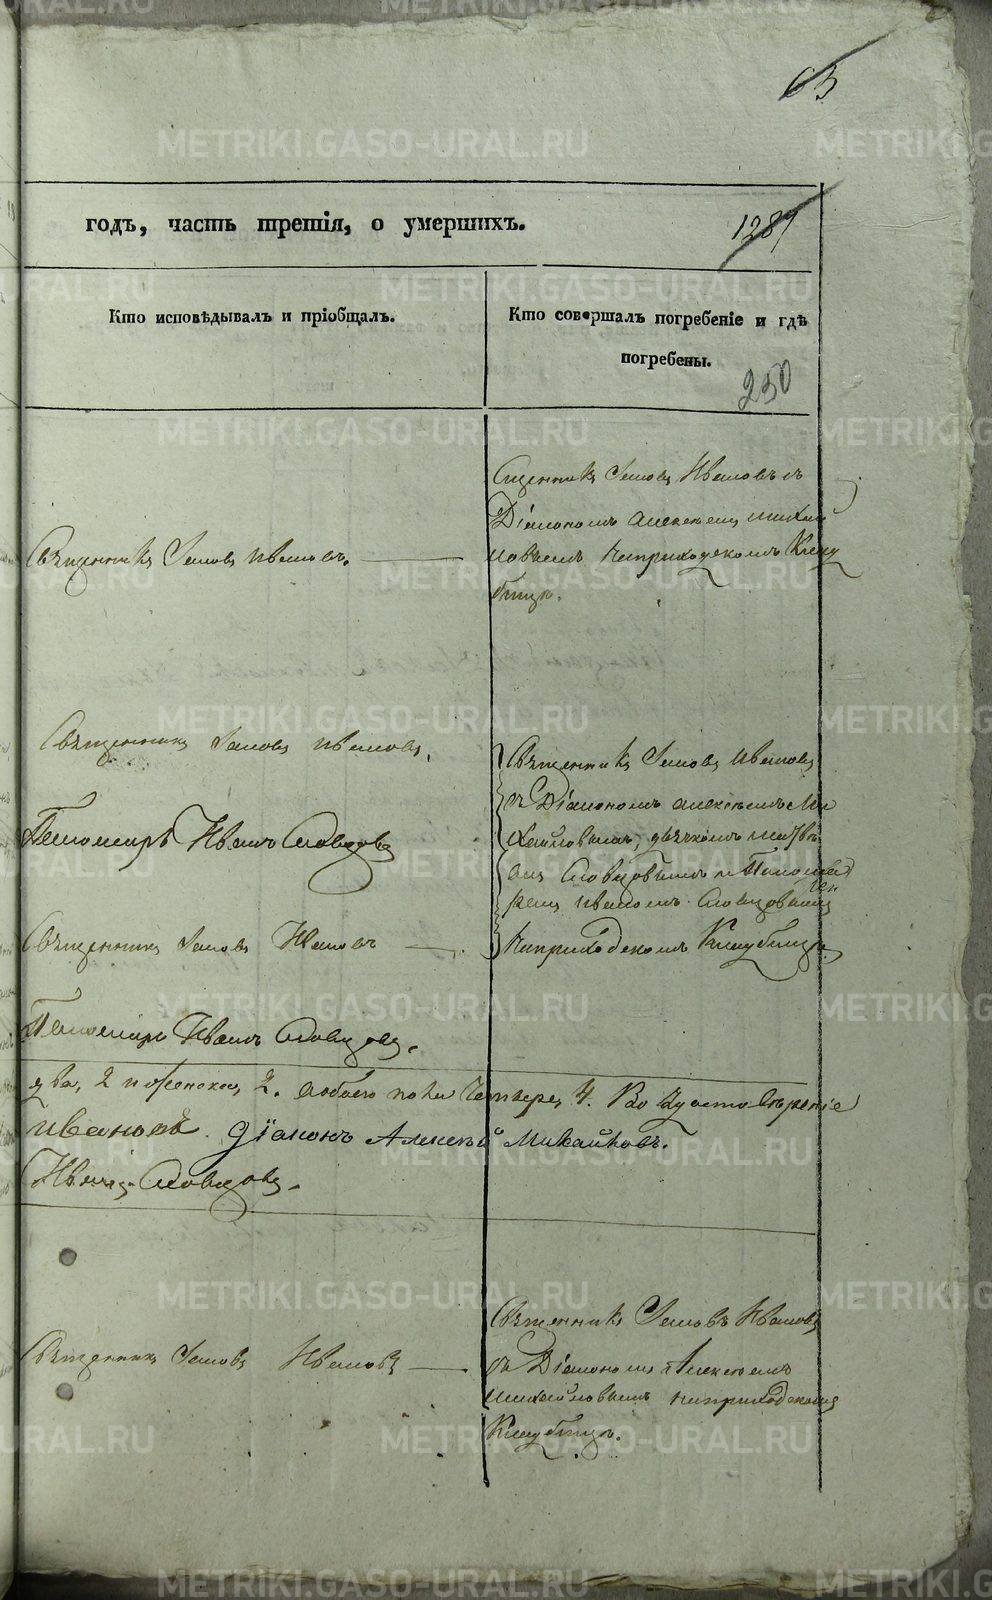 63
годъ, часть третія, о умершихъ.
1287
Кто исповѣдывалъ и пріобщалъ.
Кто совершалъ погребеніе и гдѣ
погребены.
250
Священникъ Іаковъ Ивановъ съ
Діакономъ Алексѣемъ Михай
ловымъ на приходскомъ Клад
бищѣ.
Священникъ Іаковъ Ивановъ.
Священникъ Іаковъ Ивановъ,
Пономарь Иванъ Словцовъ
Священникъ Іаковъ Ивановъ
Пономарь Иванъ Словцовъ.
Священникъ Іаковъ Ивановъ
съ Діакономъ Алексѣемъ Ми
хайловымъ, дьячкомъ Матвѣ
емъ Словцовымъ и Пономар
емъ Иваномъ Словцовымъ
на приходскомъ Кладбищѣ.
два, 2 женска, 2. обоего пола Четыре, 4. Во
Ивановъ. Діаконъ Алексѣй Михайловъ.
Иванъ Словцовъ.
Священникъ Іаковъ Ивановъ
Священникъ Іаковъ Ивановъ
съ Діакономъ Алексѣемъ
Михайловымъ на приходскомъ
Кладбищѣ.
METRIKI.GASO-URAL.RU